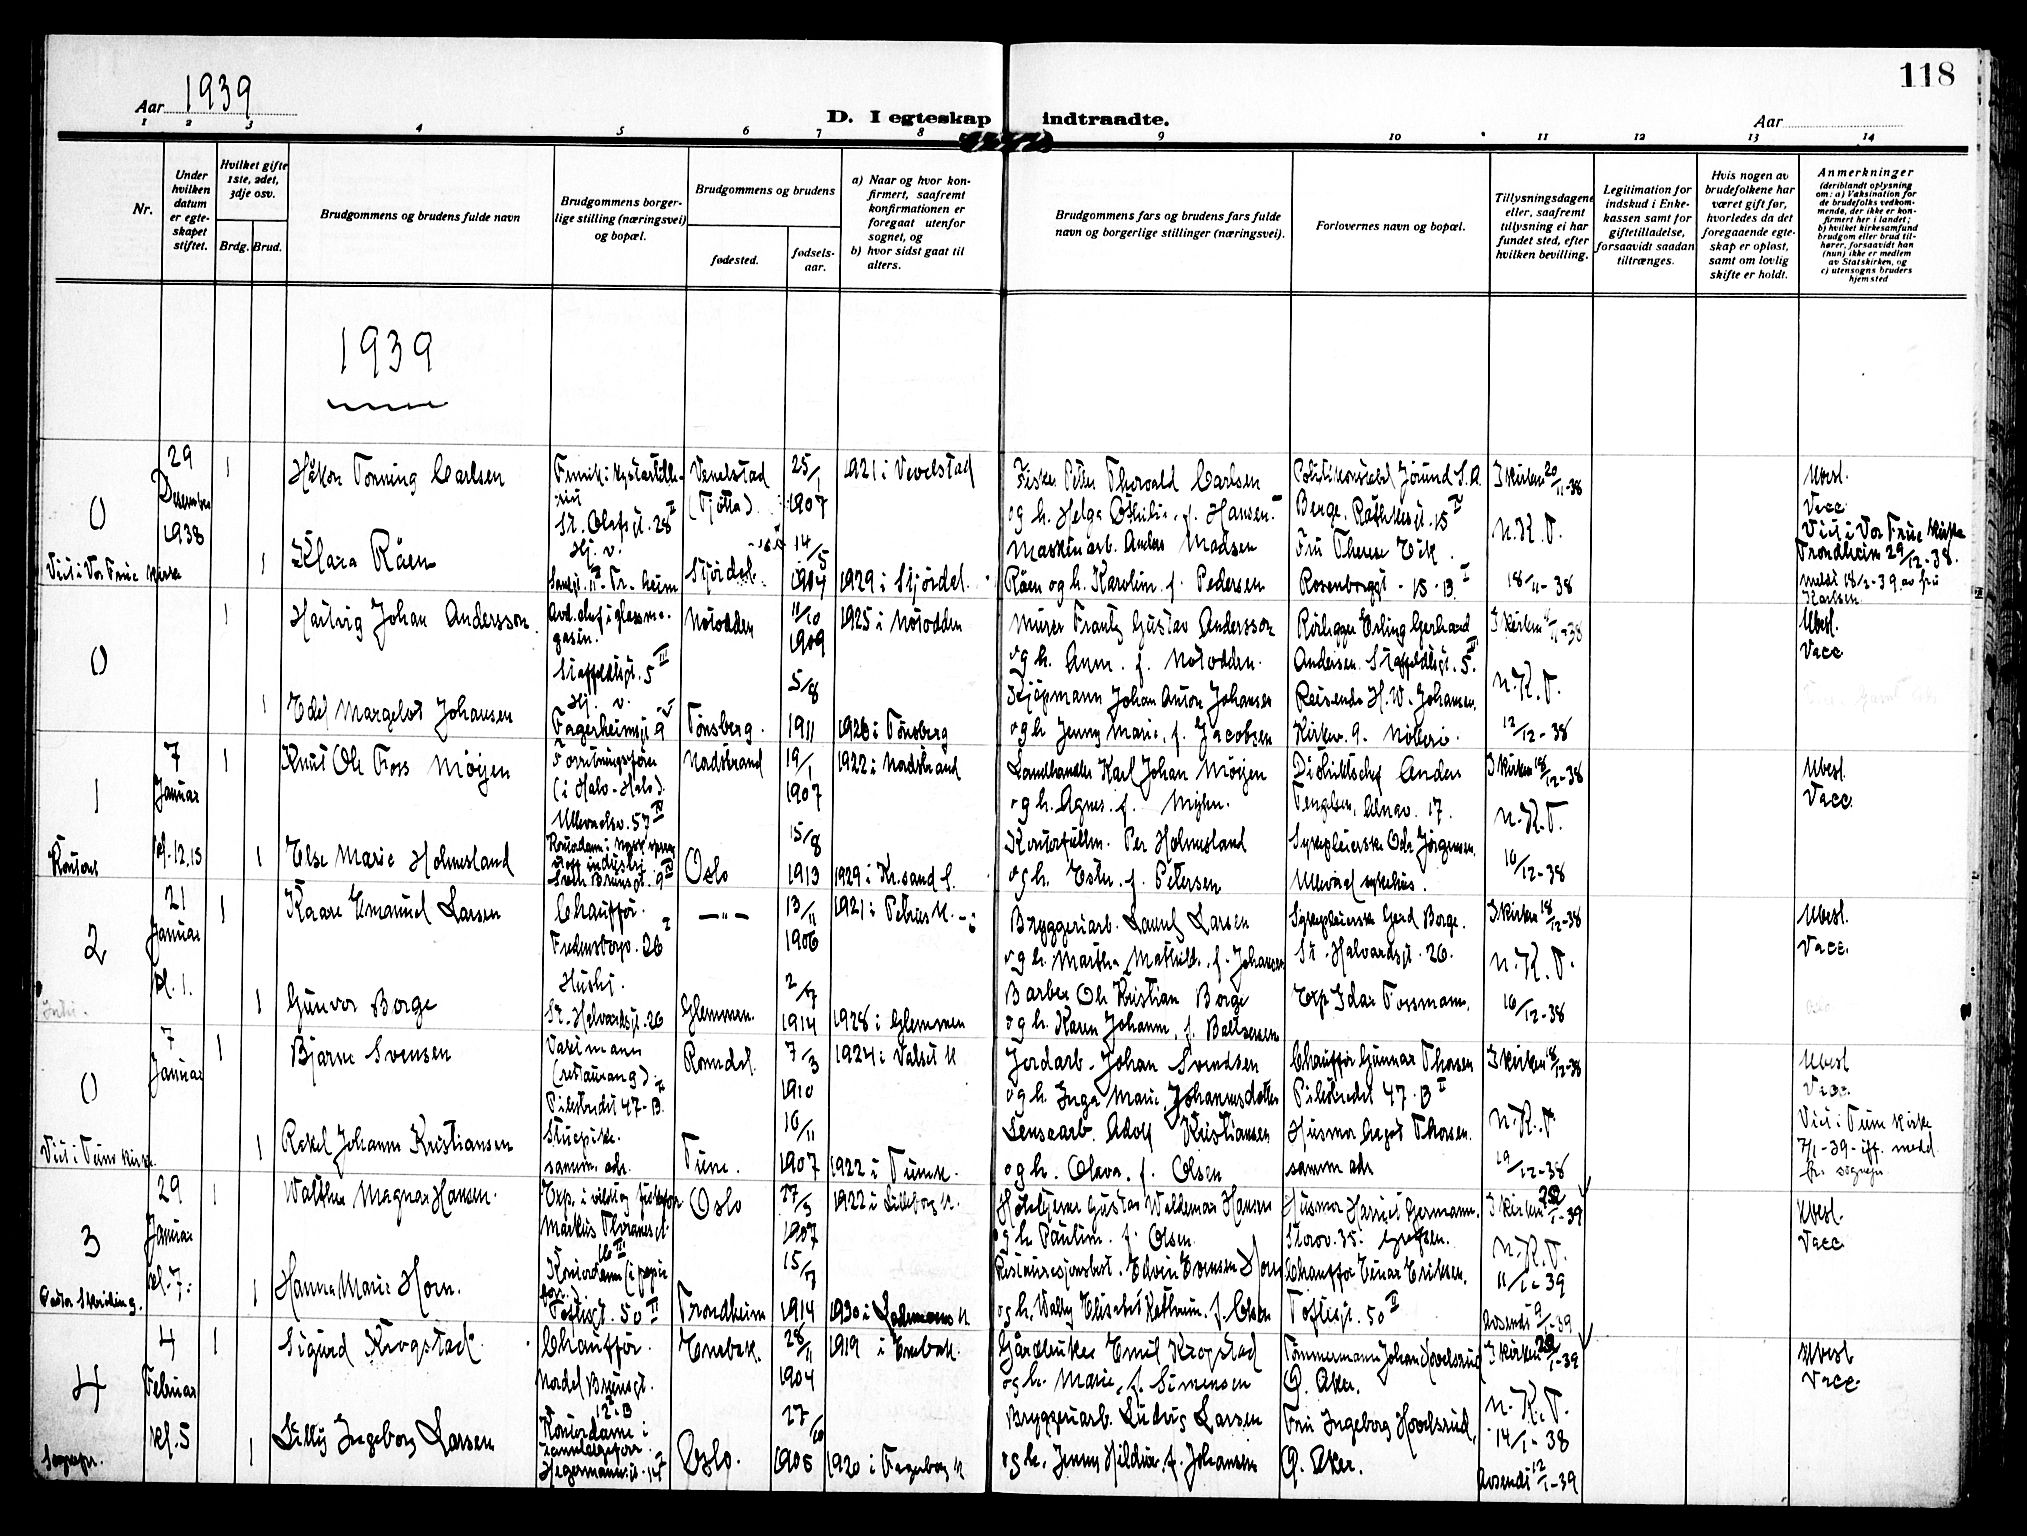 118
Aar 1939
D. I egteskap indtraadte.
Aar
1 2 3 4 5 6 7 8 9 10 11 12 13 14
Nr.
Under hvilken datum er egteskapet stiftet.
Hvilket gifte 1ste, 2det, 3dje osv.
Brdg. Brud.
Brudgommens og brudens fulde navn
Brudgommens borgerlige stilling (næringsvei) og bopæl.
Brudgommens og brudens
fødested.
fødselsaar.
a) Naar og hvor konfirmert, saafremt konfirmationen er foregaat utenfor sognet, og
b) hvor sidst gaat til alters.
Brudgommens fars og brudens fars fulde navn og borgerlige stillinger (næringsvei).
Forlovernes navn og bopæl.
Tillysningsdagene eller, saafremt tillysning ei har fundet sted, efter hvilken bevilling.
Legitimation for indskud i Enkekassen samt for giftetilladelse, forsaavidt saadan tiltrænges.
Hvis nogen av brudefolkene har været gift før, hvorledes da det foregaaende egteskap er opløst, samt om lovlig skifte er holdt.
Anmerkninger
(deriblandt oplysning om: a) Vaksination for de brudefolks vedkommende, der ikke er konfirmert her i landet; b) hvilket kirkesamfund brudgom eller brud tilhører, forsaavidt han (hun) ikke er medlem av Statskirken, og c) utensogns bruders hjemsted
1939
0
29 Desember 1938
1
Håkon Torning Carlsen
St. Olafsgt. 28 II
(Tjøtta)
25/1 1907
1921 i Vevelstad
Fisker Peter Thorvald Carlsen
og h. Helga Othilie, f. Hansen
Politikonstabel Jørund S. A.
Berge. Rathkesgt. 15 IV
I kirken 20/11-38
N.K.T.
Ubesl.
Vacc.
Viet i Vor Frue Kirke
Trondheim 29/12-38.
Viet i Vor Frue Kirke
1
Klara Råen
Hj. v.
Stjørdal
14/5 1904
1929 i Stjørdal.
Maskinarb. Anders Madsen
Råen og h. Karoline f. Pedersen
Fru Therese Eik.
Rosenborggt. 15 B. I
18/11-38
meldt 18/2-39. av fru
Karlsen
0
1
Hartvig Johan Andersson
Avd. chef i glassmagasin.
Staffeldtsgt. 5 III
Notodden
11/10 1909
1925 i Notodden
Murer Frantz Gustav Andersson
og h. Anna. f. Notodden.
Rørlegger Erling Gerhard
Andersen. Staffeldtsgt. 5. III
N.K.T.
Ubesl.
Vacc
1
Edel Margelot Johansen
Hj. v.
Fagerheimsgt. 9
Tønsberg.
5/8 1911
1926 i Tønsberg
Kjøpmann Johan Anton Johansen
og h. Jenny Marie, f. Jacobsen
Reisende H. W. Johansen.
12/12-38
1
7 Januar kl. 12.15
1
Knut Ole Foss Møyen
Ullevaalsv. 57 IV
Nadstrand
19/1 1907
1922 i Nadstrand
Landhandler Karl Johan Møyen
og h. Agnes. f. Myhre.
Distriktschef Anders
I kirken 18/12-38
N.K.T.
Ubesl
Vacc.
1
Else Marie Holmesland
Oslo
15/8 1913
1929 i Kr.sand S.
Kontorfullm. Per Holmesland
og h. Ester. f. Petersen
Sykepleierske Odr. Jørgensen.
Ullevål sykehus.
16/12-38
2
21 Januar kl. 1.
1
Kaare Emanuel Larsen
Chauffør.
Fredensborgv. 26 I
—"—
13/11 1906
1921 i Petrus K.
Bryggeriarb. Lauritz Larsen
og h. Martha Mathilde. f. Johansen
Sykepleierske Gerd Borge.
St. Halvardsgt. 26.
I kirken 18/12-38
N.K.T.
Ubesl.
Vacc.
1
Gunvor Borge
Hushj.
St. Halvardsgt. 26
Glemmen.
2/7 1914
1928 i Glemmen
Barber Ole Kristian Borge
og h. Karen Johanne, f. Baltsersen
Exp. Idar Forsmann.
16/12-38
0
7 Januar
1
Bjarne Svensen
Varimann
(restaurang).
Pilestredet 47. B.
Romedal.
7/3 1910
1924 i Valset K
Jordarb. Johan Svendsen
og h. Inga Marie Johannesdatter
Chauffør Gunnar Thorsen
Pilestredet 47. B I
I kirken 18/12-38
N.K.T
Ubesl
Vacc.
Viet i Tune Kirke
7/1-39-iflf. medd.
fra sogнepr.
Viet i Tune Kirke.
1
Rakel Johanne Kristiansen
Stuepike.
samme adr.
Tune.
16/11 1907
1922 i Tune K.
Lensearb. Adolf Kristiansen
og h. Olava. f. Olsen
Husmor Aagot Thorsen.
samme adr
19/12-38
3
29 Januar kl. 7.
Pastor Skridling.
1
Walther Magnar Hansen.
Markus Thranesgt.
16 III
Oslo
27/3 1907
1922 i Lilleborg K.
og h. Pauline. f. Olsen
Husmor Harriet Germann.
Storov. 35. Grefsen.
I kirken 22/1-39
N.K.T.
Ubesl.
Vacc
1
Hanna Marie Horn.
Toftesgt. 50 II
Trondheim
15/7 1914
1930 i Lademoen K
Restaurasjonsbest. Edvin Evensen Horn
og h. Valby Elisabet Kathrine. f. Olsen
Chauffør Einar Eriksen.
Toftesgt. 50 II
11/1-39
Avsendt 9/1-39
4
4 Februar kl. 5
Sognepr.
1
Sigurd Krogstad.
Chauffør.
Nordal Brunsgt.
12. B
Enebak.
28/11 1904
1919 i Enebak.
Gårdbruker Emil Krogstad
og h. Marie, f. Simensen
Tømmermann Johan Hovelsrud
Ø. Aker.
I kirken 22/1-39
N.K.T.
Ubesl
Vacc.
1
Lilly Ingeborg Larsen
Kontordame i
Hegermannsgt. 14
Oslo.
27/10 1905
1920 i Fagerborg K
Bryggeriarb. Ludvig Larsen
og h. Jenny Hildur f. Johansen
Fru Ingeborg Hovelsrud,
Ø. Aker.
14/1-38
Avsendt 12/1-39